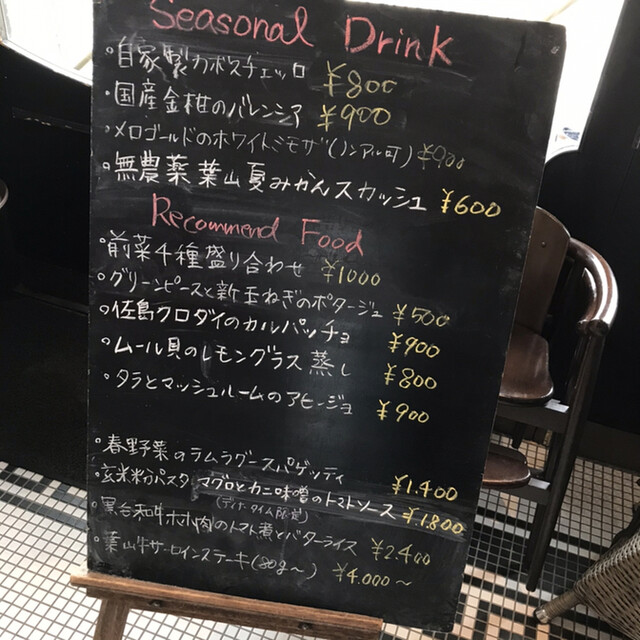 Seasonal Drink
・自家製カボスチェッロ ¥800
・国産金柑のバレンシア ¥900
・メロゴールドのホワイトミモザ(ノンアル可) ¥900
・無農薬葉山夏みかんスカッシュ ¥600
Recommend Food
・前菜4種盛り合わせ ¥1000
・グリーンピースと新玉ねぎのポタージュ ¥500
・佐島クロダイのカルパッチョ ¥900
・ムール貝のレモングラス蒸し ¥800
・タラとマッシュルームのアヒージョ ¥900
・春野菜のラムラグースパゲッティ ¥1.400
・玄米粉パスタ マグロとカニ味噌のトマトソース ¥1.800
(ディナータイム限定)
・黒毛和牛ホホ肉のトマト煮とバターライス ¥2.400
・葉山牛サーロインステーキ(80g〜) ¥4.000〜